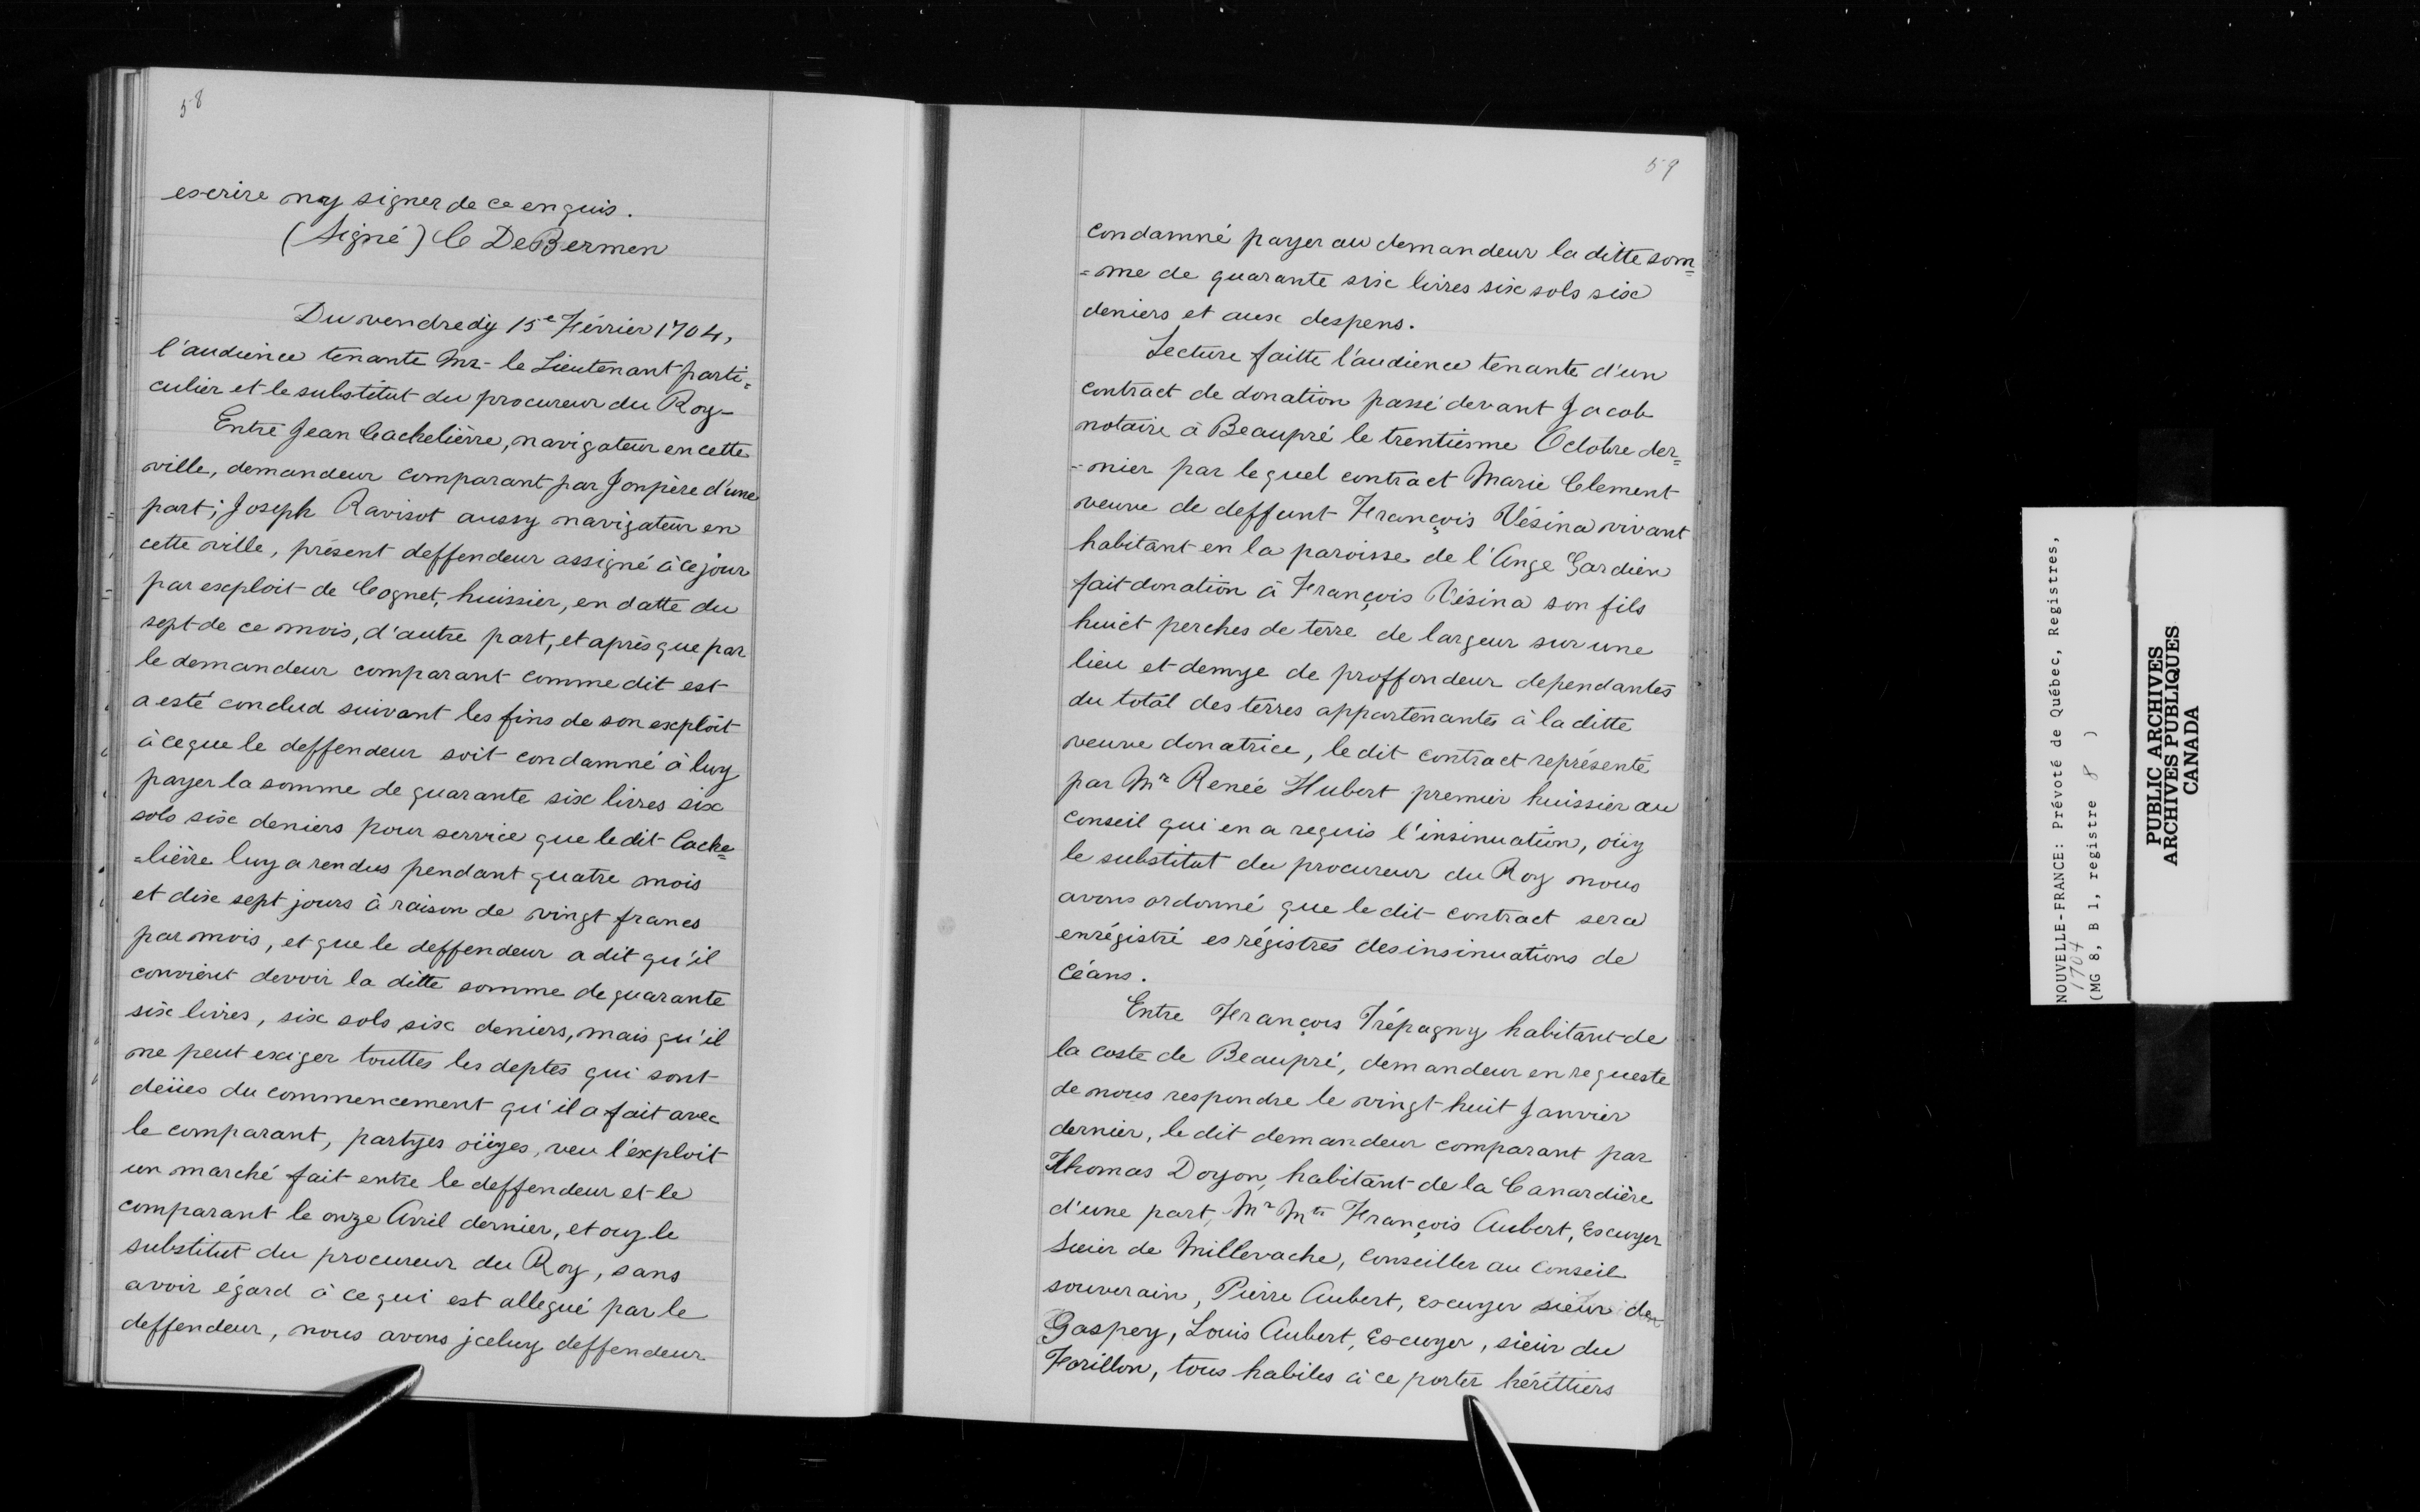 58
escrire ny signer de ce enquis.
(Signé) C DeBermen
Du vendredy 15e Février 1704,
l'audience tenante Mr- le Lieutenant parti=
culier et le substitut du procureur du Roy-
Entre Jean Cachelièrre, navigateur en cette
ville, demandeur comparant par Son père d'une
part; Joseph Ravisot aussy navigateur en
cette ville, présent deffendeur assigné à ce jour
par exploit de Cognet, huissier, en datte du
sept de ce mois, d'autre part, et après que par
le demandeur comparant comme dit est
a esté conclud suivant les fins de son exploit
à ce que le deffendeur soit condamné à luy
payer la somme de quarante six livres six
sols six deniers pour service que le dit Cache
=lièrre luy a rendus pendant quatre mois
et dix sept jours à raison de vingt francs
par mois, et que le deffendeur a dit qu'il
convient devoir la ditte somme de quarante
six livres, six sols six deniers, mais qu'il
ne peut exiger touttes les deptes qui sont
deües du commencement qu'il a fait avec
le comparant, partyes oüyes, veu l'exploit
un marché fait entre le deffendeur et le
comparant le onze Avril dernier, et ouy le
substitut du procureur du Roy, sans
avoir égard à ce qui est allegué par le
deffendeur, nous avons jceluy deffendeur
59
condamné payer au demandeur la ditte som=
=me de quarante six livres six sols six
deniers et aux despens.
Lecture faitte l'audience tenante d'un
contract de donation passé devant Jacob
notaire à Beaupré le trentiesme Octobre der=
=nier par le quel contract Marie Clement
veuve de deffunt François Vésina vivant
habitant en la paroisse de l'Ange Gardien
fait donation à François Vésina son fils
huict perches de terre de largeur sur une
lieu et demye de proffondeur dependantes
du total des terres appartenantes à la ditte
veuve donatrice, le dit contract représenté
par Mr Renée Hubert premier huissier au
conseil qui en a requis l'insinuation, oüy
le substitut du procureur du Roy nous
avons ordonné que le dit contract sera
enrégistré es régistres des insinuations de
céans.
Entre François Trépagny habitant de
la coste de Beaupré, demandeur en requeste
de nous respondre le vingt huit Janvier
dernier, le dit demandeur comparant par
Thomas Doyon, habitant de la Canardière
d'une part, Mr Mtr François Aubert, Escuyer
Sieur de Millevache, conseiller au conseil
souverain, Pierre Aubert, escuyer sieur de
Gaspey, Louis Aubert, Escuyer, sieur du
Forillon, tous habiles à ce porter hérittiers
NOUVELLE-FRANCE: Prévoté de Québec, Registres,
1704
(MG 8, B 1, registre 8 )
PUBLIC ARCHIVES
ARCHIVES PUBLIQUES
CANADA